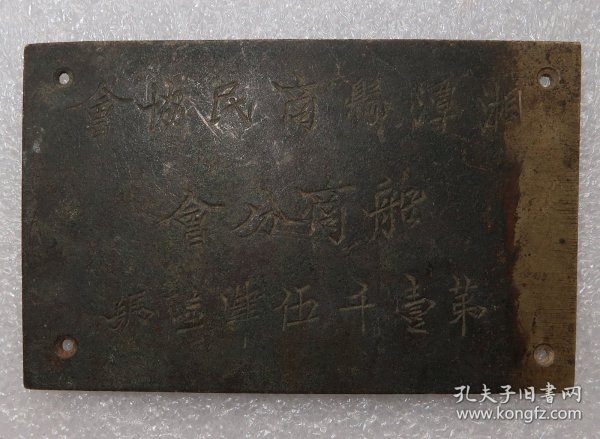 湘潭縣商民協會
船商分會
第壹千伍陸號
孔夫子旧书网
www.kongfz.com